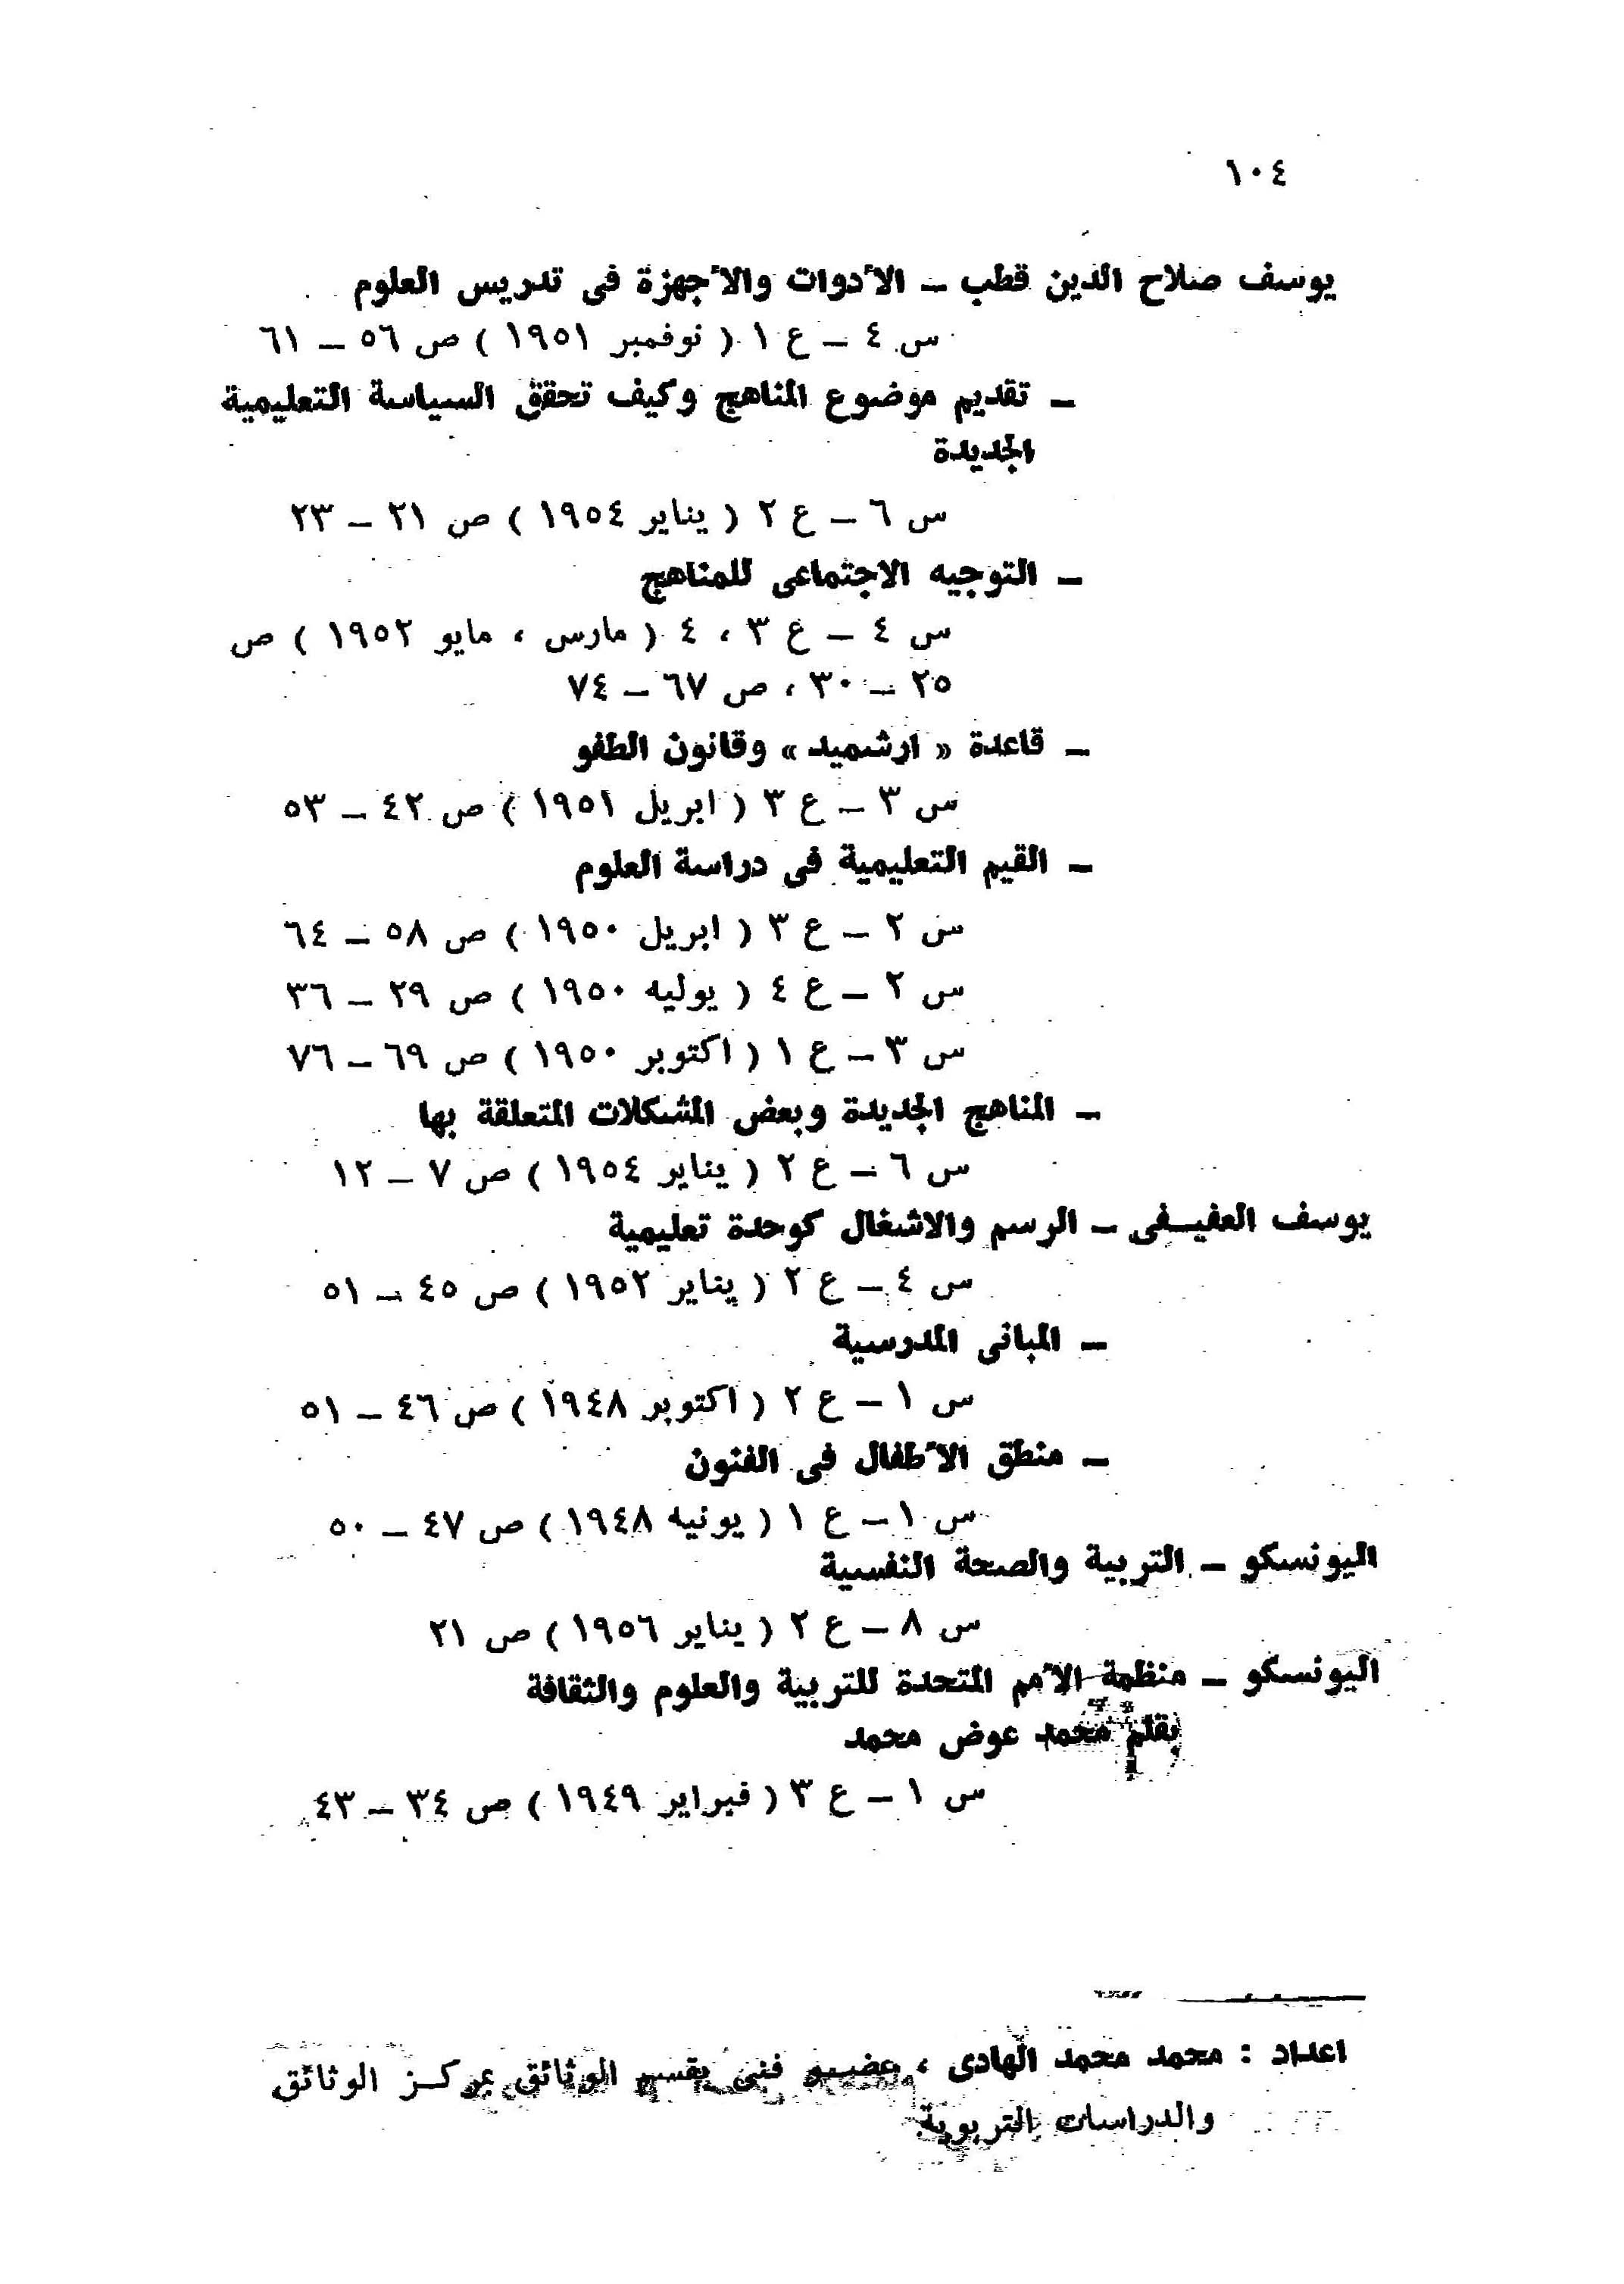 ١٠٤
يوسف صلاح الدين قطب – الأدوات والأجهزة فى تدريس العلوم
س ٤ – ع ١ ( نوفمبر ١٩٥١ ) ص ٥٦ – ٦١
– تقديم موضوع المناهج وكيف تحقق السياسة التعليمية
الجديدة
س ٦ – ع ٢ ( يناير ١٩٥٤ ) ص ٢١ – ٢٣
– التوجيه الاجتماعى للمناهج
س ٤ – ع ٣ ، ٤ ( مارس ، مايو ١٩٥٢ ) ص
٢٥ – ٣٠ ، ص ٦٧ – ٧٤
– قاعدة « ارشميد » وقانون الطفو
س ٣ – ع ٣ ( ابريل ١٩٥١ ) ص ٤٢ – ٥٣
– القيم التعليمية فى دراسة العلوم
س ٢ – ع ٣ ( ابريل ١٩٥٠ ) ص ٥٨ – ٦٤
س ٢ – ع ٤ ( يوليه ١٩٥٠ ) ص ٢٩ – ٣٦
س ٣ – ع ١ ( اكتوبر ١٩٥٠ ) ص ٦٩ – ٧٦
– المناهج الجديدة وبعض المشكلات المتعلقة بها
س ٦ – ع ٢ ( يناير ١٩٥٤ ) ص ٧ – ١٢
يوسف العفيفى – الرسم والاشغال كوحدة تعليمية
س ٤ – ع ٢ ( يناير ١٩٥٢ ) ص ٤٥ – ٥١
– المبانى المدرسية
س ١ – ع ٢ ( اكتوبر ١٩٤٨ ) ص ٤٦ – ٥١
– منطق الأطفال فى الفنون
س ١ – ع ١ ( يونيه ١٩٤٨ ) ص ٤٧ – ٥٠
اليونسكو – التربية والصحة النفسية
س ٨ – ع ٢ ( يناير ١٩٥٦ ) ص ٢١
اليونسكو – منظمة الأمم المتحدة للتربية والعلوم والثقافة
بقلم محمد عوض محمد
س ١ – ع ٣ ( فبراير ١٩٤٩ ) ص ٣٤ – ٤٣
اعداد : محمد محمد الهادى ، عضو فنى بقسم الوثائق بمركز الوثائق
والدراسات التربوية